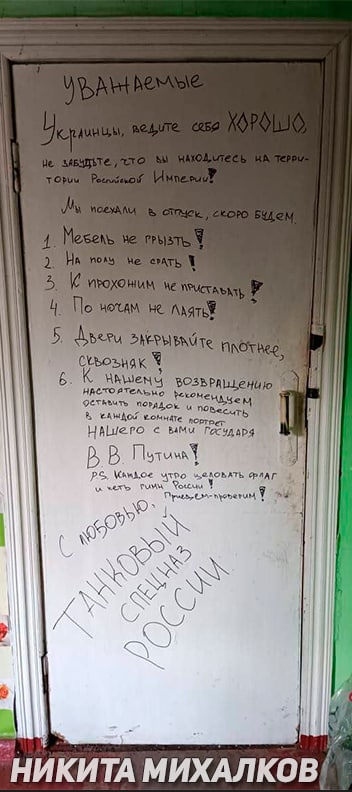 УВАЖАЕМЫЕ
Украинцы, ведите себя ХОРОШО,
не забудьте, что вы находитесь на терри-
тории Российской Империи!
Мы поехали в отпуск, скоро будем.
1. Мебель не грызть!
2. На полу не срать!
3. К прохожим не приставать!
4. По ночам не лаять!
5. Двери закрывайте плотнее,
сквозняк!
6. К нашему возвращению
настоятельно рекомендуем
оставить порядок и повесить
в каждой комнате портрет
нашего с вами государя
В. В. Путина!
P.S. Каждое утро целовать флаг
и петь гимн России!
Приедем-проверим!
С любовью,
ТАНКОВЫЙ
СПЕЦНАЗ
РОССИИ
НИКИТА МИХАЛКОВ